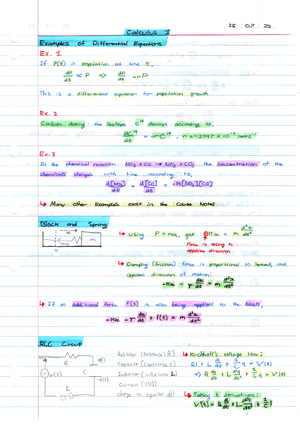 Calculus 1
Examples of Differential Equations
Ex. 1
If P(t) is population at time t,
dP/dt ∝ P ⇒ dP/dt = rP
This is a differential equation for population growth
Ex. 2
Carbon dating: the isotope C¹⁴ decays according to,
Ex. 3
In the chemical reaction NO₂ + CO → NO₂ + CO₂ the concentration of the
chemicals changes with time according to,
d[NO₂]/dt = d[CO]/dt = -K[NO₂][CO]
↳ Many other examples exist in the Course Notes
Block and Spring
↳ Using F = ma, get m d²x/dt²
Force is acting in
opposite direction
↳ Damping (friction) force is proportional to speed, and
opposes direction of motion:
-Kx - r dx/dt = m d²x/dt²
↳ If an additional force f(t) is also being applied to the block,
-Kx - r dx/dt + f(t) = m d²x/dt²
RLC Circuit
Resistor (resistance R)
Capacitor (capacitance C)
Inductor (inductance L)
Current (I(t))
charge on capacitor
↳ Kirchhoff's voltage law:
RI + L dI/dt + 1/C q = V(t)
⇒ R dq/dt + L d²q/dt² + 1/C q = V(t)
↳ Taking t derivatives:
V'(t) = R dI/dt + L d²I/dt² + 1/C I